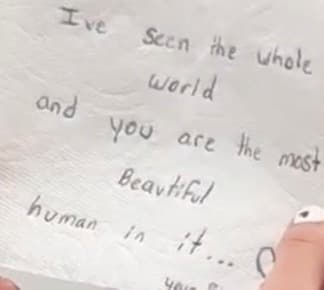 Ive seen the whole
world
and you are the most
Beautiful
human in it...